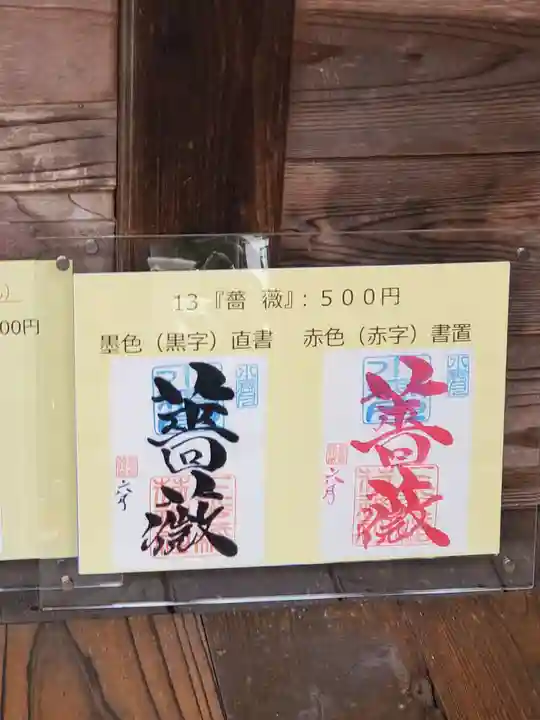 00円
13『薔 薇』：５００円
墨色（黒字）直書
赤色（赤字）書置
薔薇
六月
薔薇
六月